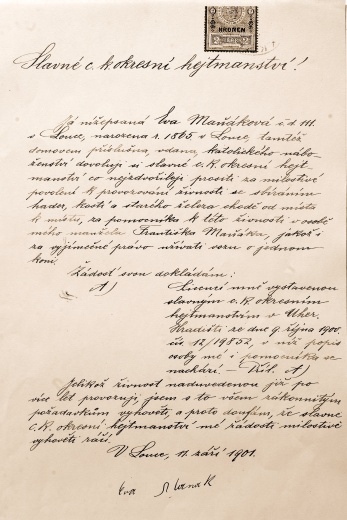 KRONEN
2 2
Slavné c. k. okresní hejtmanství!
Já nížepsaná Eva Maňáková č. d. 111.
v Louce, narozena r. 1865 v Louce, tamtéž
domovem příslušna, vdaná, katolického nábo-
ženství dovoluji si slavné c. k. okresní hejt-
manství co nejzdvořileji prositi za milostivé
povolení k provozování živnosti se sbíráním
hader, kostí a starého železa chodě od místa
k místu, za pomocníka k této živnosti v osobě
mého manžela Františka Maňáka, jakož i
za výjimečné právo užívati vozu o jednom
koni.
Žádost svou dokládám:
A)
Licencí mně vystavenou
slavným c. k. okresním
hejtmanstvím v Uher.
Hradišti ze dne 9. října 1900.
čís 12/19852, v níž popis
osoby mé i pomocníka se
nachází. – Příl. A)
Jelikož živnost naduvedenou již po
více let provozuji, jsem s to všem zákonnitým
požadavkům vyhověti, a proto doufám, že slavné
c. k. okresní hejtmanství mé žádosti milostivě
vyhověti ráčí.
V Louce, 17. září 1901.
Eva